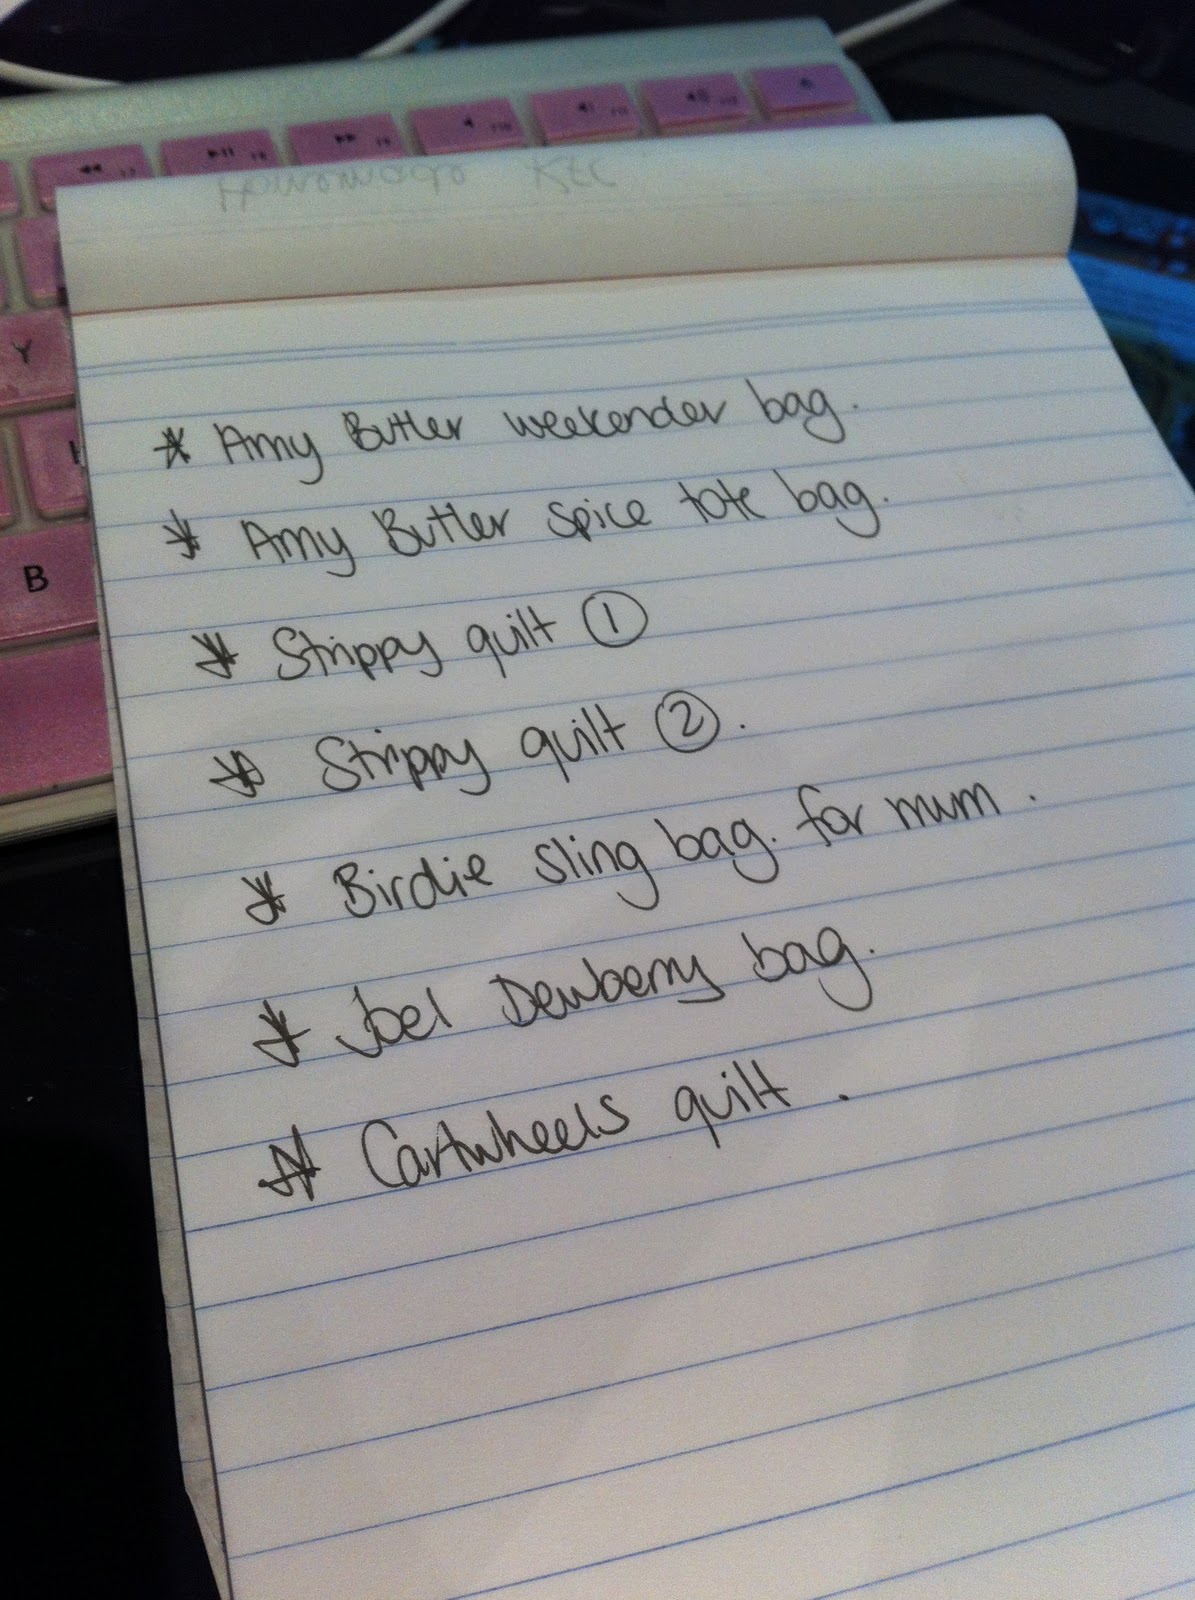 * Amy Butler weekender bag.
* Amy Butler spice tote bag.
* Strippy quilt ①
* Strippy quilt ②.
* Birdie sling bag. for mum.
* Joel Dewberry bag.
* Cartwheels quilt.
Y
B